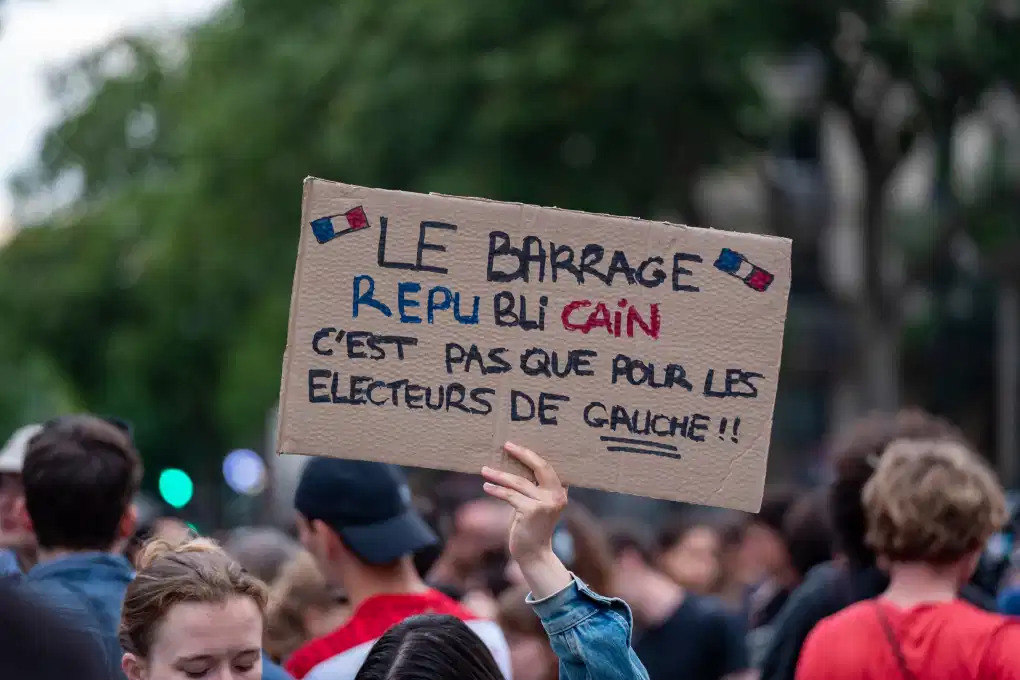 LE BARRAGE
REPUBLiCAiN
C'EST PAS QUE POUR LES
ELECTEURS DE GAUCHE!!